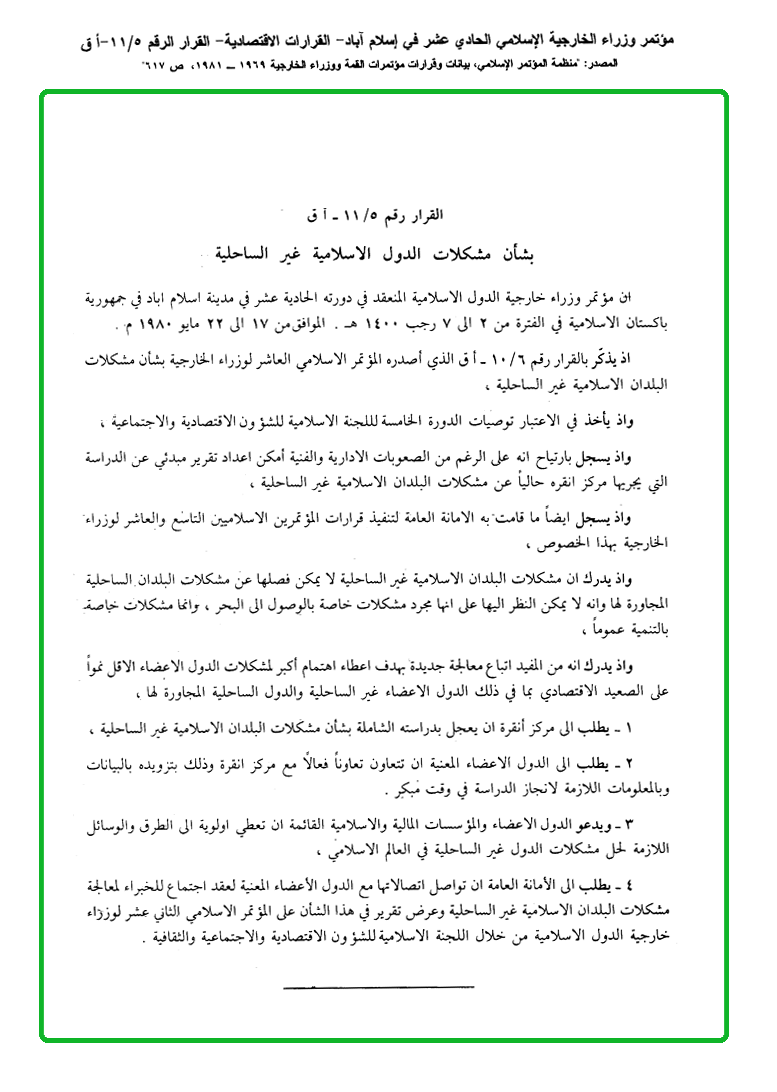 مؤتمر وزراء الخارجية الإسلامي الحادي عشر في إسلام آباد- القرارات الاقتصادية- القرار الرقم ١١/٥-أ ق
المصدر: "منظمة المؤتمر الإسلامي، بيانات وقرارات مؤتمرات القمة ووزراء الخارجية ١٩٦٩ ــ ١٩٨١، ص ٦١٧"
القرار رقم ١١/٥ ـ أ ق
بشأن مشكلات الدول الاسلامية غير الساحلية
ان مؤتمر وزراء خارجية الدول الاسلامية المنعقد في دورته الحادية عشر في مدينة اسلام اباد في جمهورية
باكستان الاسلامية في الفترة من ٢ الى ٧ رجب ١٤٠٠ هـ . الموافق من ١٧ الى ٢٢ مايو ١٩٨٠ م .
اذ يذكّر بالقرار رقم ١٠/٦ ـ أ ق الذي أصدره المؤتمر الاسلامي العاشر لوزراء الخارجية بشأن مشكلات
البلدان الاسلامية غير الساحلية ،
واذ يأخذ في الاعتبار توصيات الدورة الخامسة لللجنة الاسلامية للشؤون الاقتصادية والاجتماعية ،
واذ يسجل بارتياح انه على الرغم من الصعوبات الادارية والفنية أمكن اعداد تقرير مبدئي عن الدراسة
التي يجريها مركز انقره حالياً عن مشكلات البلدان الاسلامية غير الساحلية ،
واذ يسجل ايضاً ما قامت به الامانة العامة لتنفيذ قرارات المؤتمرين الاسلاميين التاسع والعاشر لوزراء
الخارجية بهذا الخصوص ،
واذ يدرك ان مشكلات البلدان الاسلامية غير الساحلية لا يمكن فصلها عن مشكلات البلدان الساحلية
المجاورة لها وانه لا يمكن النظر اليها على انها مجرد مشكلات خاصة بالوصول الى البحر ، وانما مشكلات خاصة
بالتنمية عموماً ،
واذ يدرك انه من المفيد اتباع معالجة جديدة بهدف اعطاء اهتمام أكبر لمشكلات الدول الاعضاء الاقل نمواً
على الصعيد الاقتصادي بما في ذلك الدول الاعضاء غير الساحلية والدول الساحلية المجاورة لها ،
١ ـ يطلب الى مركز أنقرة ان يعجل بدراسته الشاملة بشأن مشكلات البلدان الاسلامية غير الساحلية ،
٢ ـ يطلب الى الدول الاعضاء المعنية ان تتعاون تعاوناً فعالاً مع مركز انقرة وذلك بتزويده بالبيانات
وبالمعلومات اللازمة لانجاز الدراسة في وقت مبكر .
٣ ـ ويدعو الدول الاعضاء والمؤسسات المالية والاسلامية القائمة ان تعطي اولوية الى الطرق والوسائل
اللازمة لحل مشكلات الدول غير الساحلية في العالم الاسلامي ،
٤ ـ يطلب الى الأمانة العامة ان تواصل اتصالاتها مع الدول الأعضاء المعنية لعقد اجتماع للخبراء لمعالجة
مشكلات البلدان الاسلامية غير الساحلية وعرض تقرير في هذا الشأن على المؤتمر الاسلامي الثاني عشر لوزراء
خارجية الدول الاسلامية من خلال اللجنة الاسلامية للشؤون الاقتصادية والاجتماعية والثقافية .